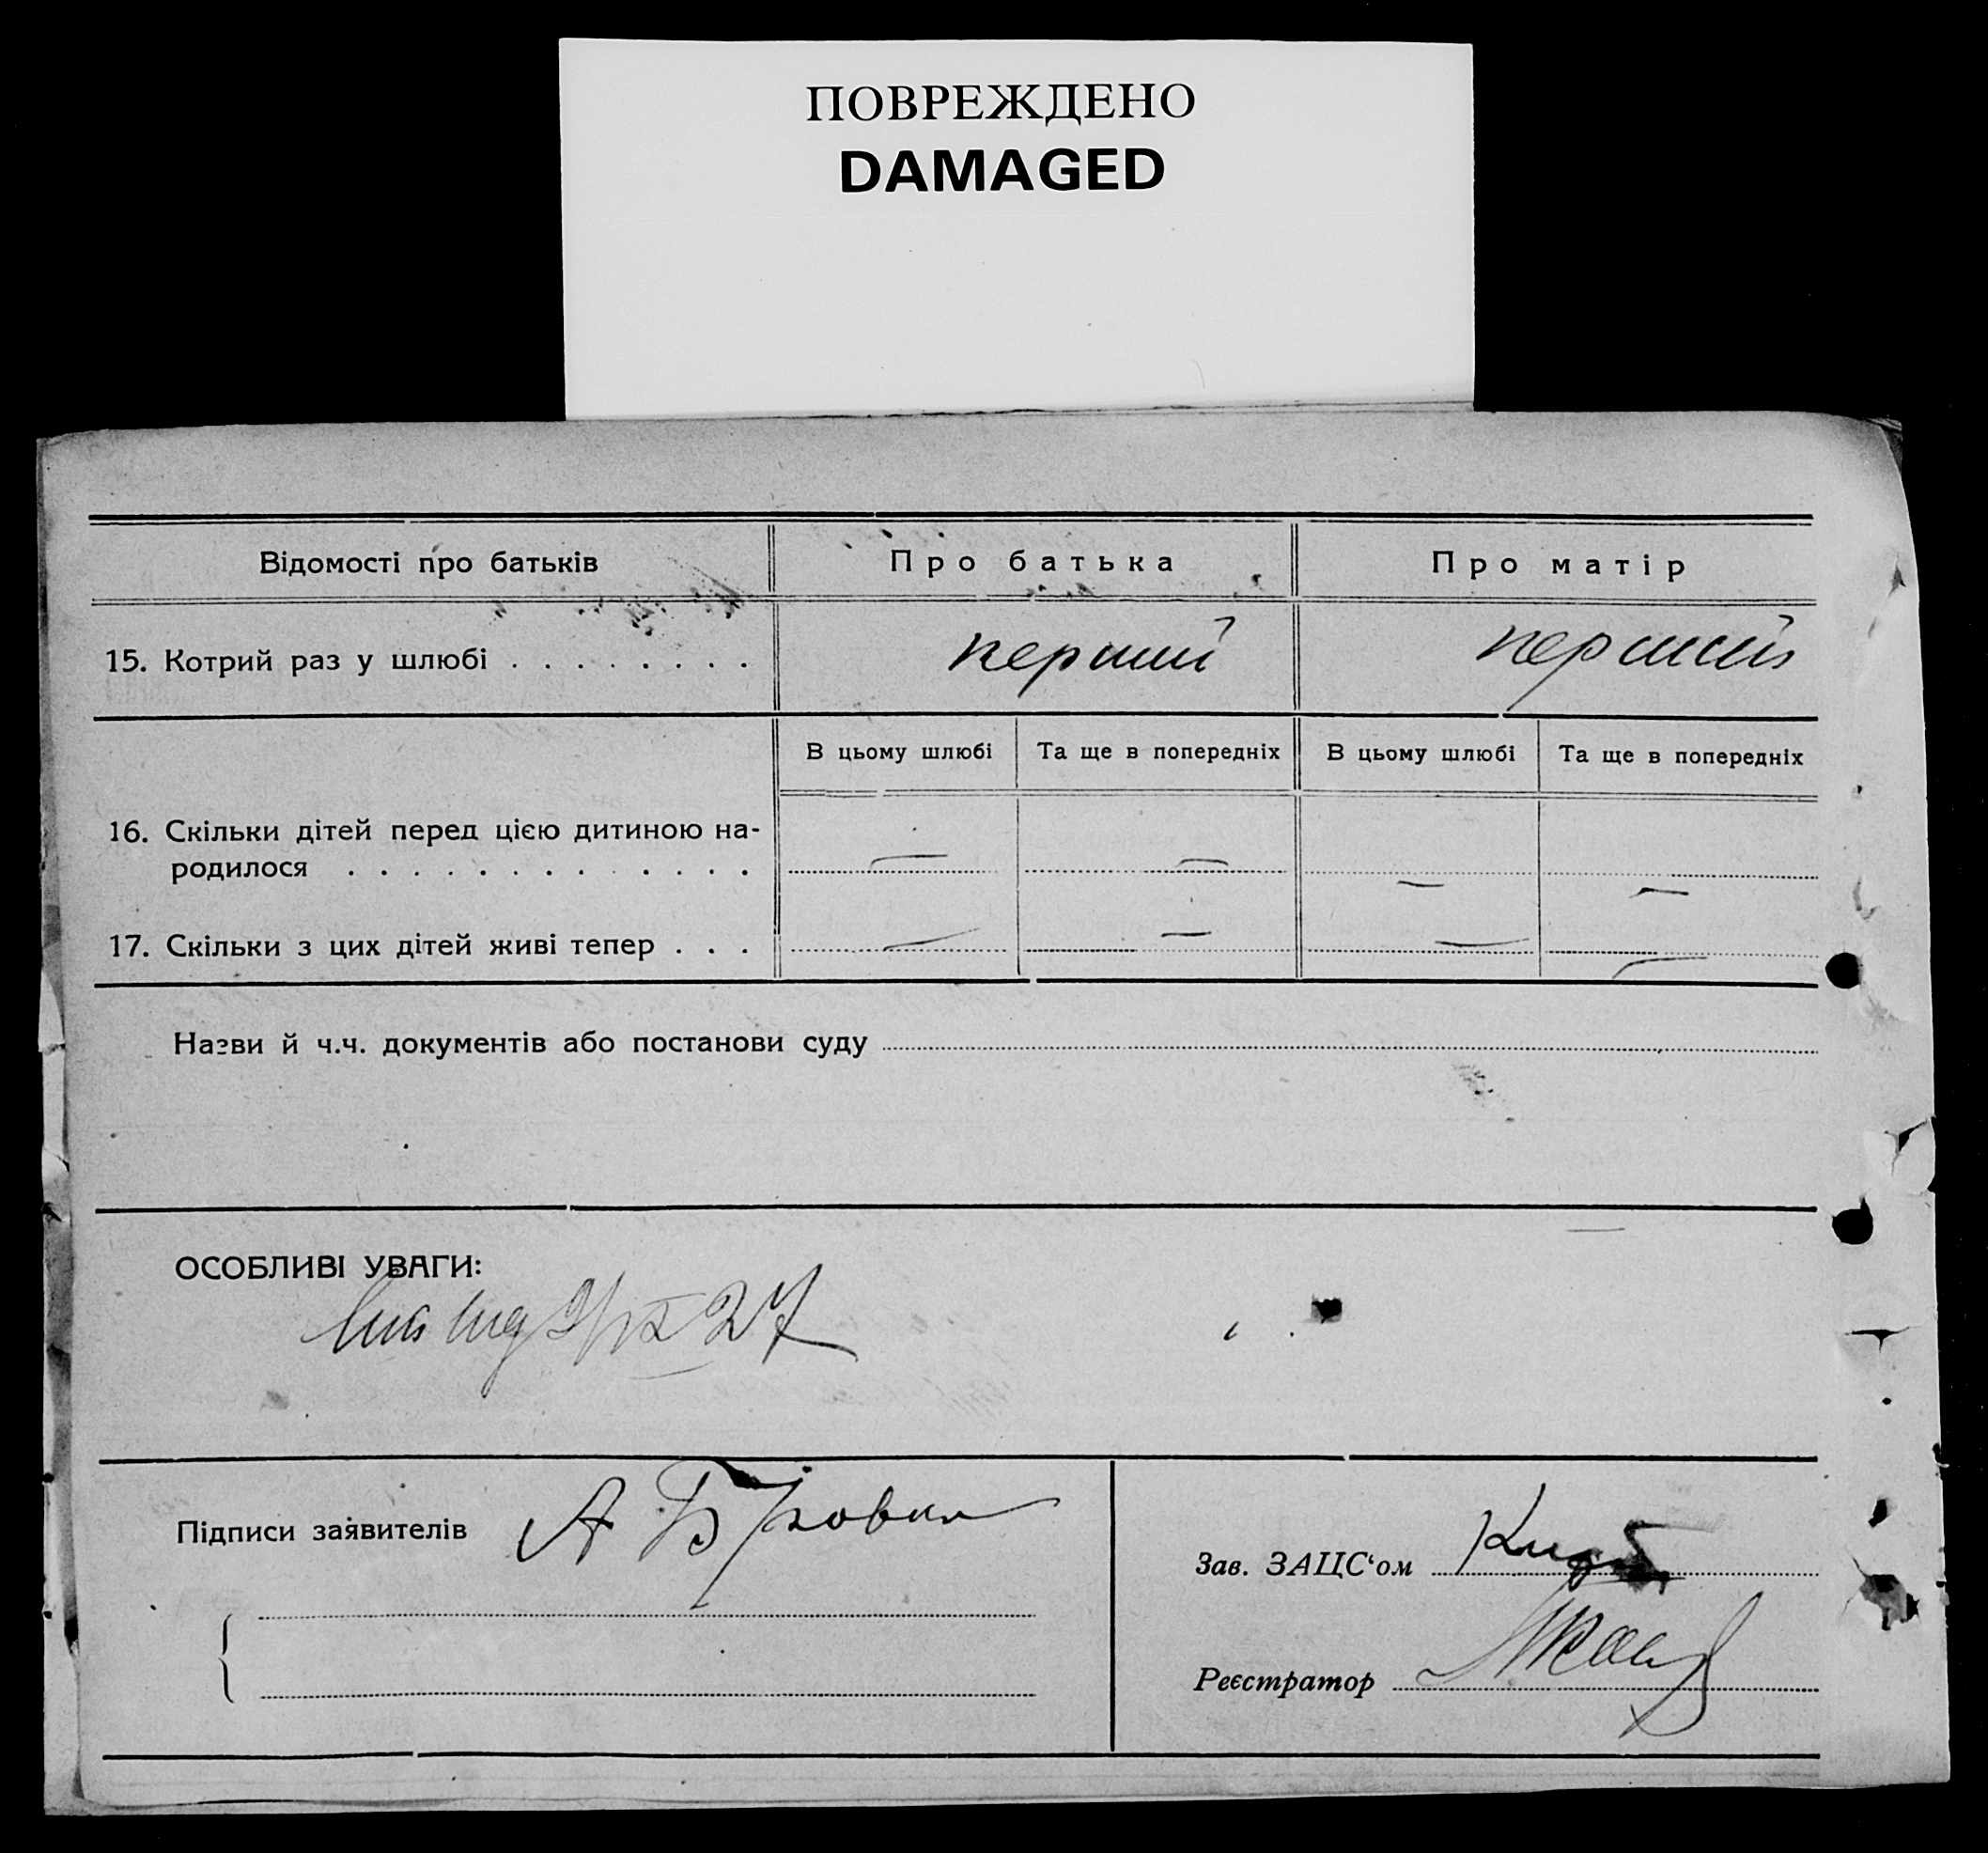 ПОВРЕЖДЕНО
DAMAGED
Відомості про батьків
Про батька
Про матір
15. Котрий раз у шлюбі . . . . . . . .
перший
перший
В цьому шлюбі
Та ще в попередніх
В цьому шлюбі
Та ще в попередніх
16. Скільки дітей перед цією дитиною на-
родилося . . . . . . . . . . . . .
— — — —
17. Скільки з цих дітей живі тепер . . .
— — — —
Назви й ч.ч. документів або постанови суду
ОСОБЛИВІ УВАГИ:
27
Підписи заявителів
А
Зав. ЗАЦС‘ом
Реєстратор